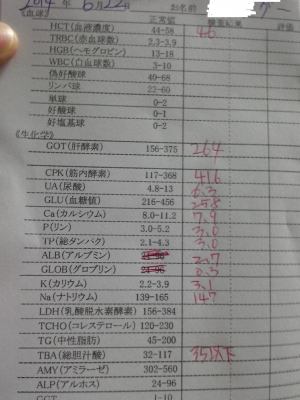 2014 年 6月22日 お名前
《血球》 正常値 検査結果 評価
HCT(血液濃度) 44-58 46
TRBC(赤血球数) 2.3-3.9
HGB(ヘモグロビン) 13-18
WBC(白血球数) 3-10
偽好酸球 40-68
リンパ球 22-60
単球 0-2
好酸球 0-1
好塩基球 0-2
《生化学》
GOT(肝酵素) 156-375 264
CPK(筋内酵素) 117-368 416
UA(尿酸) 4.8-13 6.3
GLU(血糖値) 216-456 258
Ca(カルシウム) 8.0-11.2 7.9
P(リン) 3.0-5.2 3.0
TP(総タンパク) 2.1-4.3 3.0
ALB(アルブミン) 2.7
GLOB(グロブリン) 24-96 0.3
K(カリウム) 2.2-3.9 3.1
Na(ナトリウム) 139-165 147
LDH(乳酸脱水素酵素) 156-384
TCHO(コレステロール) 120-230
TG(中性脂肪) 45-200
TBA(総胆汁酸) 32-117 35以下
AMY(アミラーゼ) 302-560
ALP(アルホス) 24-96
GGT 1-10